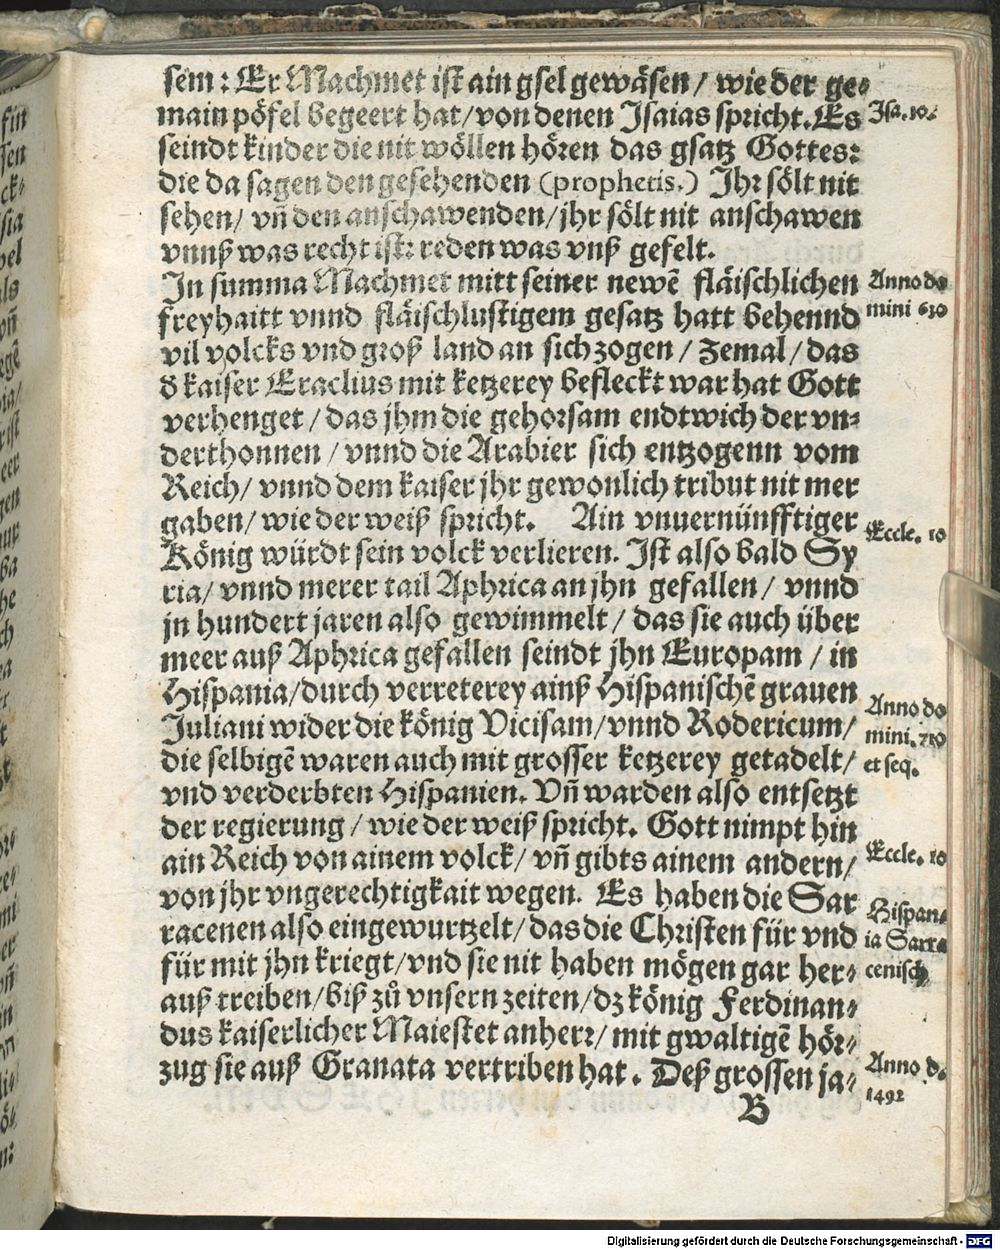 sem: Er Machmet ist ain gsel gewäsen / wie der ge⸗
main pöfel begeert hat / von denen Isaias spricht. Es
seindt kinder die nit wöllen hören das gsatz Gottes:
die da sagen den gesehenden (prophetis.) Ihr sölt nit
sehen / vñ den anschawenden / jhr sölt nit anschawen
vnnß was recht ist: reden was vnß gefelt.
In summa Machmet mitt seiner newẽ fläischlichen
freyhaitt vnnd fläischlustigem gesatz hatt behennd
vil volcks vnd groß land an sich zogen / Zemal / das
d kaiser Eraclius mit ketzerey befleckt war hat Gott
verhenget / das jhm die gehorsam endtwich der vn⸗
derthonnen / vnnd die Arabier sich entzogenn vom
Reich / vnnd dem kaiser jhr gewonlich tribut nit mer
gaben / wie der weiß spricht. Ain vnuernünfftiger
König würdt sein volck verlieren. Ist also bald Sy
ria / vnnd merer tail Aphrica an jhn gefallen / vnnd
jn hundert jaren also gewimmelt / das sie auch über
meer auß Aphrica gefallen seindt jhn Europam / in
Hispania / durch verreterey ainß Hispanischẽ grauen
Juliani wider die könig Vicisam / vnnd Rodericum /
die selbigẽ waren auch mit grosser ketzerey getadelt /
vnd verderbten Hispanien. Vñ warden also entsetzt
der regierung / wie der weiß spricht. Gott nimpt hin
ain Reich von ainem volck / vñ gibts ainem andern /
von jhr vngerechtigkait wegen. Es haben die Sar
racenen also eingewurtzelt / das die Christen für vnd
für mit jhn kriegt / vnd sie nit haben mögen gar her⸗
auß treiben / biß zů vnsern zeiten / dz könig Ferdinan⸗
dus kaiserlicher Maiestet anherr / mit gwaltigẽ hör⸗
zug sie auß Granata vertriben hat. Deß grossen ja⸗
B
Isa. 30.
Anno do
mini 630
Eccle. 10
Anno do
mini. 710
et seq.
Eccle. 10
Hispan⸗
ia Sarra
cenisch
Anno d.
1492
Digitalisierung gefördert durch die Deutsche Forschungsgemeinschaft - DFG